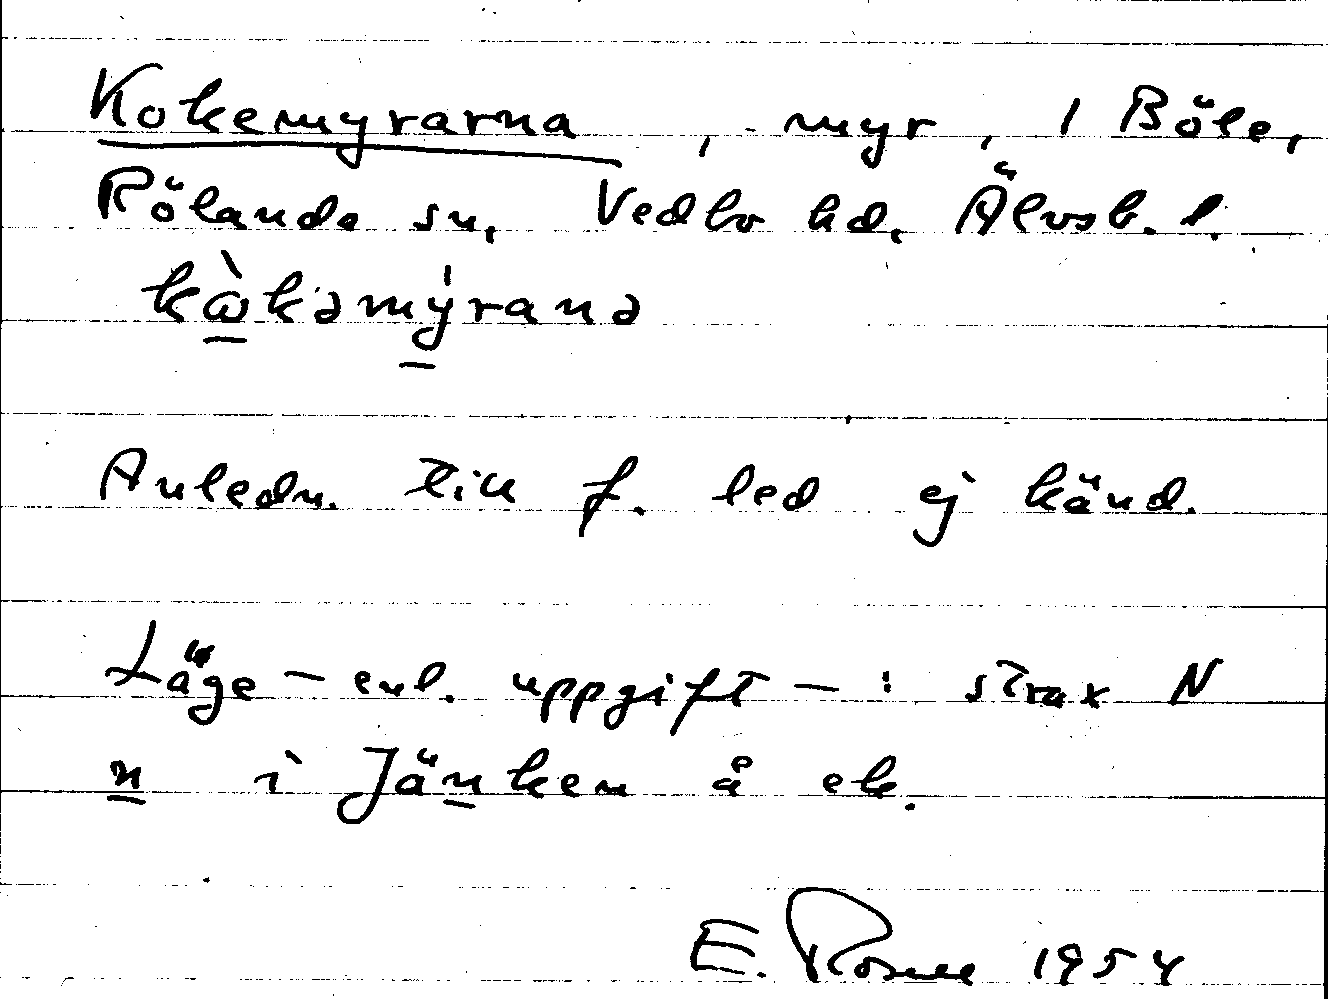 Kokemyrarna, myr, 1 Böle,
Rölanda sn, Vedbo hd, Älvsb. l.
kὼkəmýranə
Anledn. till f. led ej känd.
Läge – enl. uppgift – : strax N
n i Jänken å ek.
E. 1954